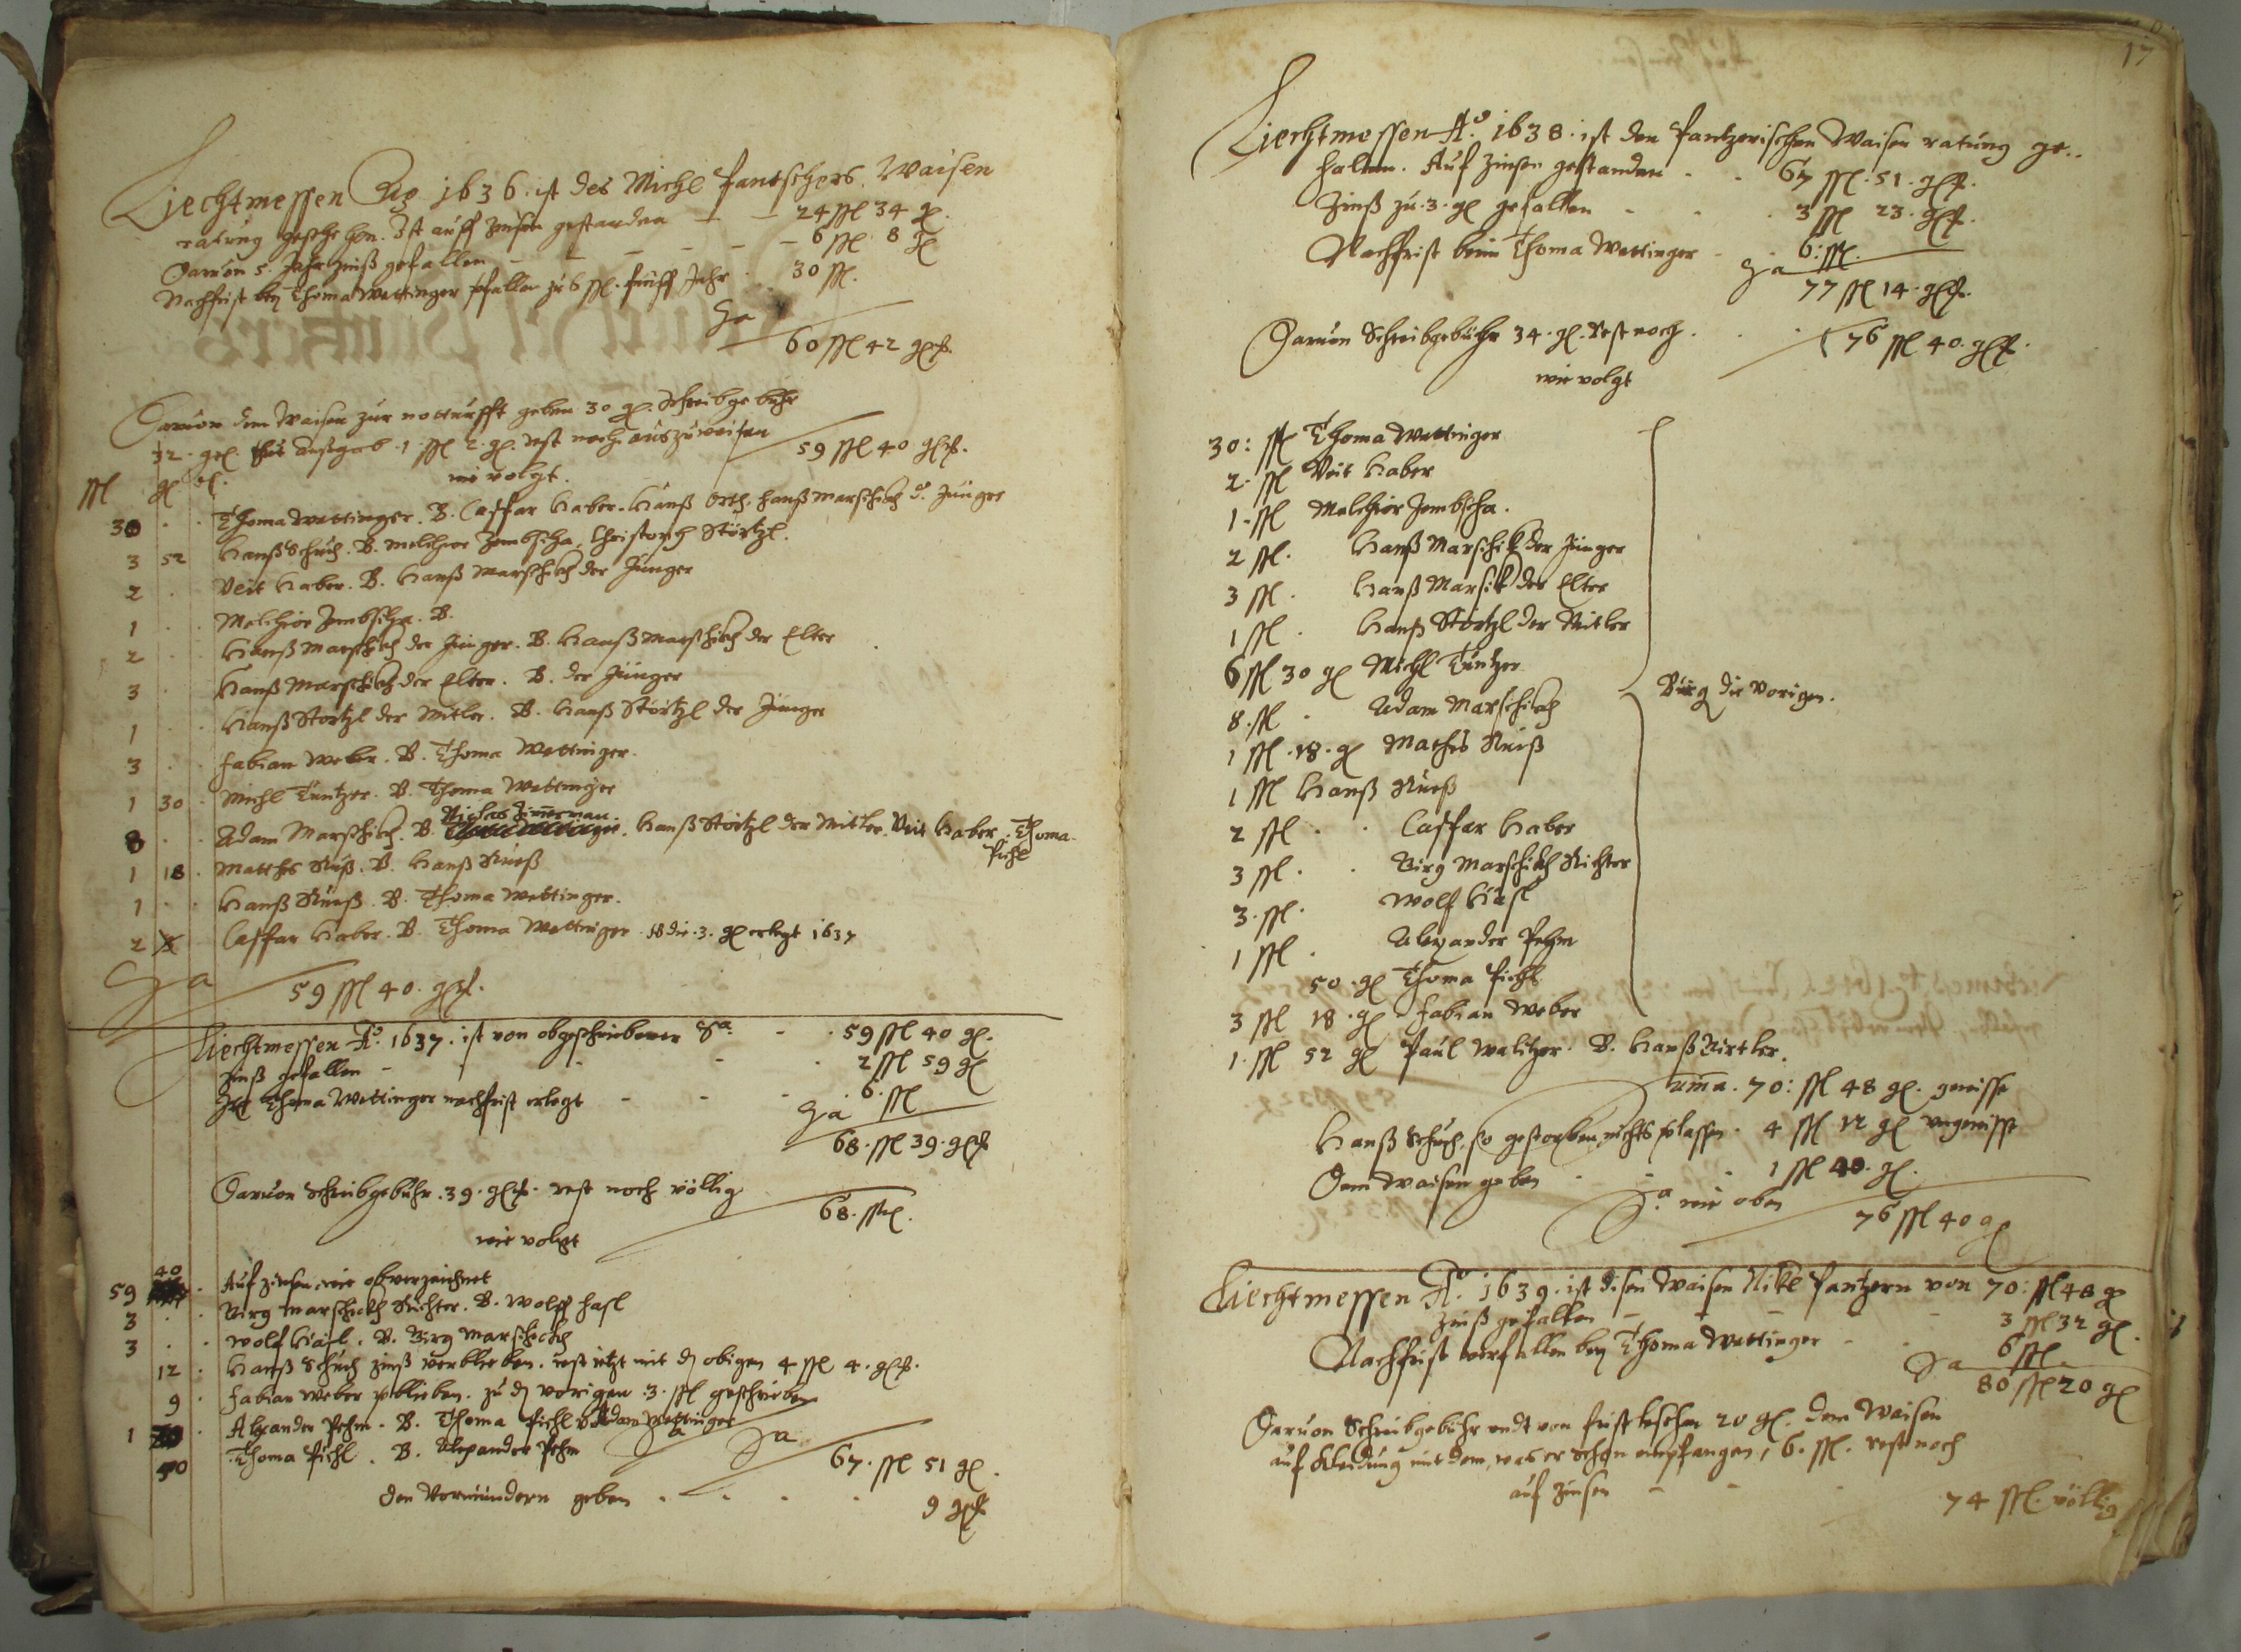 Liechtmessen Aō 1636. ist des Michl Pantschers Waisen
raitung geschehen. Ist auff Zinsen gestanden 24 ßl 34 gl
Daruon 5. Jahr Zinß gefallen 6 ßl 8 gl
Nachfrist bey Thoma Wettinger gfallen zu 6 ßl. funff Jahr 30 ßl.
Sa
60 ßl 42 glß.
Daruon dem Waisen zur notturfft geben 30 gl. Schreibgebühr
32. gl. thut Ausgab. 1 ßl 2 gl. rest noch auszuweisen
59 ßl 40 glß.
wie volgt.
ßl gl
30 . . Thoma Wettinger. B. Casspar Haber. Hanß Orth. Hanß Marschick d. Jünger
3 52 Hanß Schuch. B. Melchior Zembscha, Christoph Störtzl.
2 . Veit Haber. B. Hanß Marschick der Jünger
1 . . Melchior Zembscha. B.
2 . . Hanß Marschick der Jünger. B. Hanß Marschick der Elter
3 . Hanß Marschick der Elter. B. der Jünger
1 . . Hanß Störtzl der Mitler. B. Hanß Störtzl der Jünger
3 . . Fabian Weber. B. Thoma Wettinger.
1 30 . Michl Tuntzer. B. Thoma Wettinger
Niclas Zimerman.
8 . . Adam Marschick. B. Hanß Störtzl der Mitler. Veit Haber. Thoma
Pichl
1 18 . Matthes Rueß. B. Hanß Rueß
1 . . Hanß Rueß. B. Thoma Wettinger.
2 Casspar Haber. B. Thoma Wettinger. die 3. gl erlegt 1637
Sa
59 ßl 40. glß.
Liechtmessen Aō 1637. ist von obgeschriebener Sa. 59 ßl 40 gl.
Zinß gefallen 2 ßl 59 gl
Thoma Wettinger nachfrist erlegt 6. ßl
Sa
68. ßl 39. glß
Daruon Schreibgebühr. 39. glß. rest noch völlig
68. ßl.
wie volgt
59 40 . Auf Zinsen, wie obverzeichnet
3 . . Birg Marschick Richter. B. Wolff Hasl
3 . . Wolf Hasl. B. Birg Marschick
12 . Hanß Schuch Zinß verblieben. rest itzt mit d obigen 4 ßl 4. glß.
9 . Fabian Weber verblieben. zu d vorigen 3. ßl geschrieben
1 . Alexander Pehm. B. Thoma Pichl Adam Wettinger
50 . Thoma Pichl. B. Alexander Pehm
Sa
67. ßl 51 gl.
Den Vormündern geben 9 glß
17
Liechtmessen Aō. 1638. ist den Pantzerischen Waisen raitung ge..
halten. Auf Zinsen gestanden 67 ßl. 51. glß.
Zinß zu 3. gl gefallen 3 ßl 23. glß.
Nachfrist beim Thoma Wettinger 6. ßl.
Sa
77 ßl 14. glß.
Daruon Schreibgebühr 34. gl. Rest noch. 76 ßl 40. glß.
wie volgt
30: ßl Thoma Wettinger
2. ßl Veit Haber
1. ßl Melchior Zembscha.
2 ßl. Hanß Marschick der Jünger
3 ßl. Hanß Marsick der Elter
1 ßl. Hanß Störtzl der Mitler
6 ßl 30 gl Michl Tuntzer
Bürg die vorigen.
8. ßl . Adam Marschick
1 ßl. 18. gl Mathes Rueß
1 ßl Hanß Rueß
2 ßl . . Casspar Haber
3 ßl. . Birg Marschick Richter
3. ßl. Wolf Hasl
1 ßl . Alexander Pehm
50. gl Thoma Pichl
3 ßl 18. gl Fabian Weber
1. ßl 52 gl Paul Walitzer. B. Hanß Birtler.
Suma. 70: ßl 48 gl. gewisse
Hanß Schuch, so gestorben, nichts glassen. 4 ßl 12 gl vngewisse
Dem Waisen geben 1 ßl 40. gl.
Sa. wie oben
76 ßl 40 gl
Liechtmessen Aō. 1639. ist disen Waisen Nikl Pantzern von 70: ßl 48 gl
Zinß gefallen 3 ßl 32 gl.
Nachfrist verfallen bey Thoma Wettinger 6 ßl.
Sa
80 ßl 20 gl
Daruon Schreibgebühr vndt von frist 20 gl. dem Waisen
auf Kleidung mit dem, was er schon empfangen, 6. ßl. rest noch
auf Zinsen 74 ßl. völlig